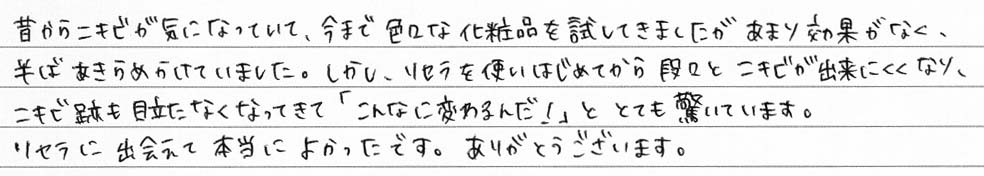 昔からニキビが気になっていて、今まで色々な化粧品を試してきましたがあまり効果がなく、
半ばあきらめかけていました。しかし、リセラを使いはじめてから段々とニキビが出来にくくなり、
ニキビ跡も目立たなくなってきて「こんなに変わるんだ！」ととても驚いています。
リセラに出会えて本当によかったです。ありがとうございます。